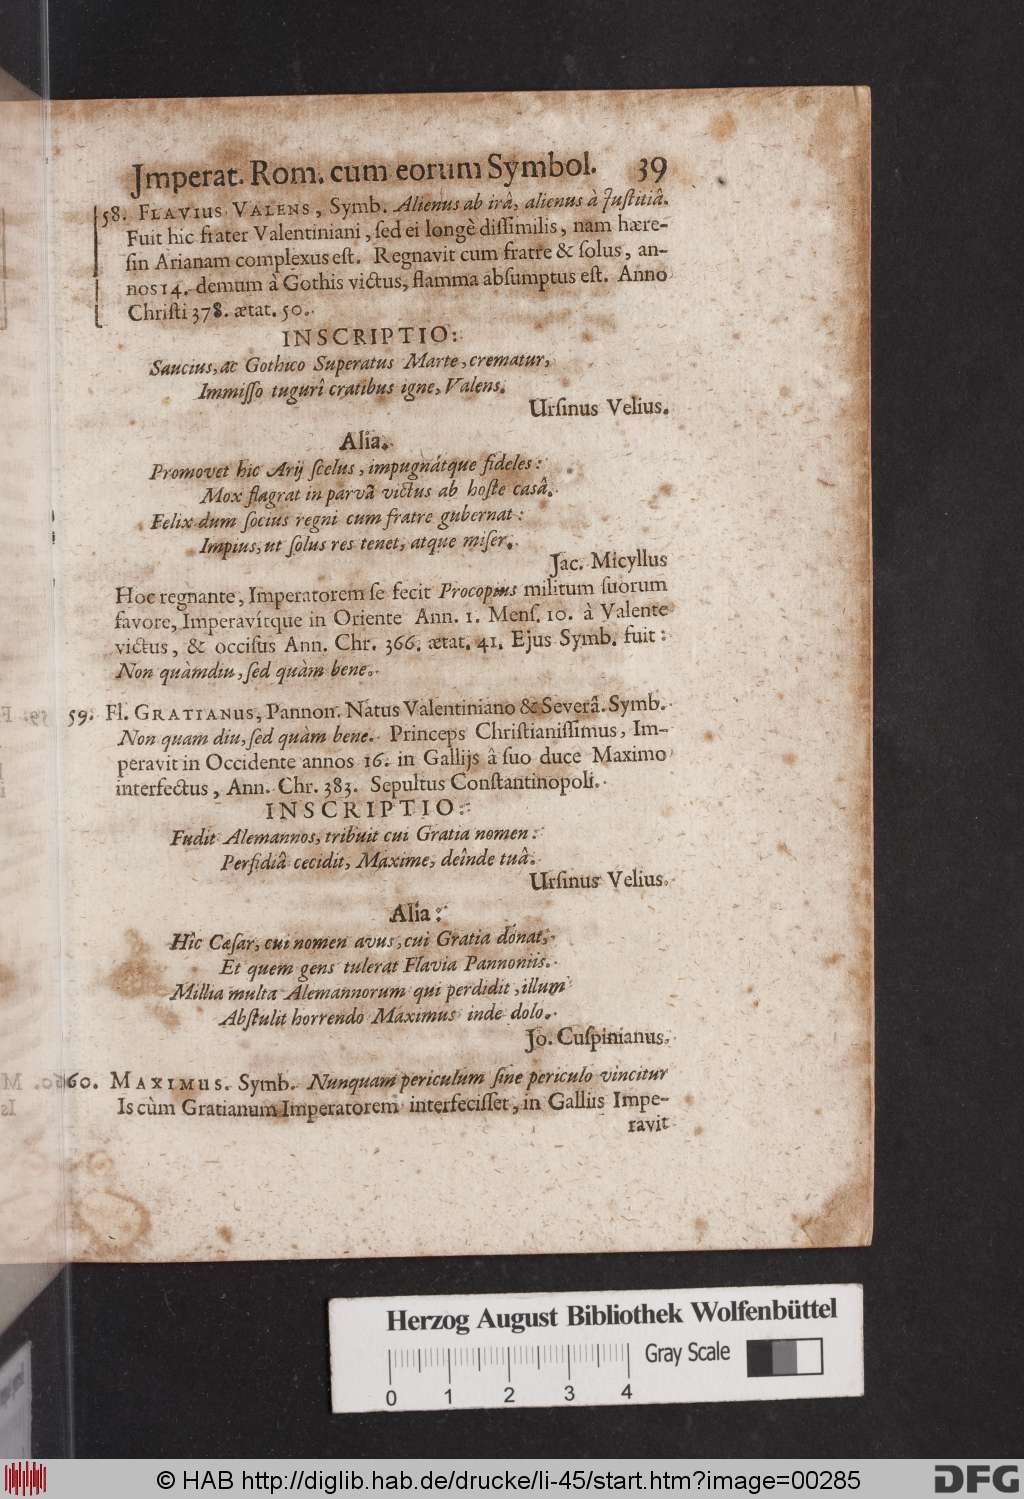 Jmperat. Rom. cum eorum Symbol. 39
58. FLAVIUS VALENS, Symb. Alienus ab irâ, alienus à Juſtitiâ.
Fuit hic frater Valentiniani, ſed ei longè diſſimilis, nam hære-
ſin Arianam complexus eſt. Regnavit cum fratre & ſolus, an-
nos 14. demum à Gothis victus, flamma abſumptus eſt. Anno
Chriſti 378. ætat. 50.
INSCRIPTIO:
Saucius, ac Gothico Superatus Marte, crematur,
Immiſſo tugurî cratibus igne, Valens.
Urſinus Velius.
Alia.
Promovet hic Arij ſcelus, impugnátque fideles:
Mox flagrat in parvâ victus ab hoſte casâ.
Felix dum ſocius regni cum fratre gubernat:
Impius, ut ſolus res tenet, atque miſer.
Jac. Micyllus
Hoc regnante, Imperatorem ſe fecit Procopius militum ſuorum
favore, Imperavítque in Oriente Ann. 1. Menſ. 10. à Valente
victus, & occiſus Ann. Chr. 366. ætat. 41. Ejus Symb. fuit:
Non quàmdiu, ſed quàm bene.
59. Fl. GRATIANUS, Pannon. Natus Valentiniano & Severâ. Symb.
Non quam diu, ſed quàm bene. Princeps Chriſtianiſſimus, Im-
peravit in Occidente annos 16. in Gallijs â ſuo duce Maximo
interfectus, Ann. Chr. 383. Sepultus Conſtantinopoli.
INSCRIPTIO:
Fudit Alemannos, tribuit cui Gratia nomen:
Perfidiâ cecidit, Maxime, deînde tuâ.
Urſinus Velius.
Alia:
Hîc Cæſar, cui nomen avus, cui Gratia dónat,
Et quem gens tulerat Flavia Pannoniis.
Millia multa Alemannorum qui perdidit, illum
Abſtulit horrendo Maximus inde dolo.
Jo. Cuſpinianus.
60. MAXIMUS. Symb. Nunquam periculum ſine periculo vincitur
Is cùm Gratianum Imperatorem interfeciſſet, in Galliis Impe-
ravit
Herzog August Bibliothek Wolfenbüttel
Gray Scale
0 1 2 3 4
© HAB http://diglib.hab.de/drucke/li-45/start.htm?image=00285
DFG